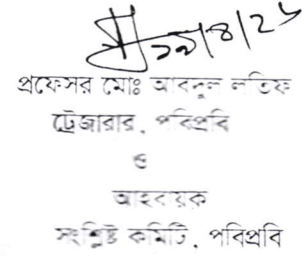 ২৯/৪/২৬
প্রফেসর মোঃ আবদুল লতিফ
ট্রেজারার, পবিপ্রবি
ও
আহবায়ক
সংশ্লিষ্ট কমিটি, পবিপ্রবি